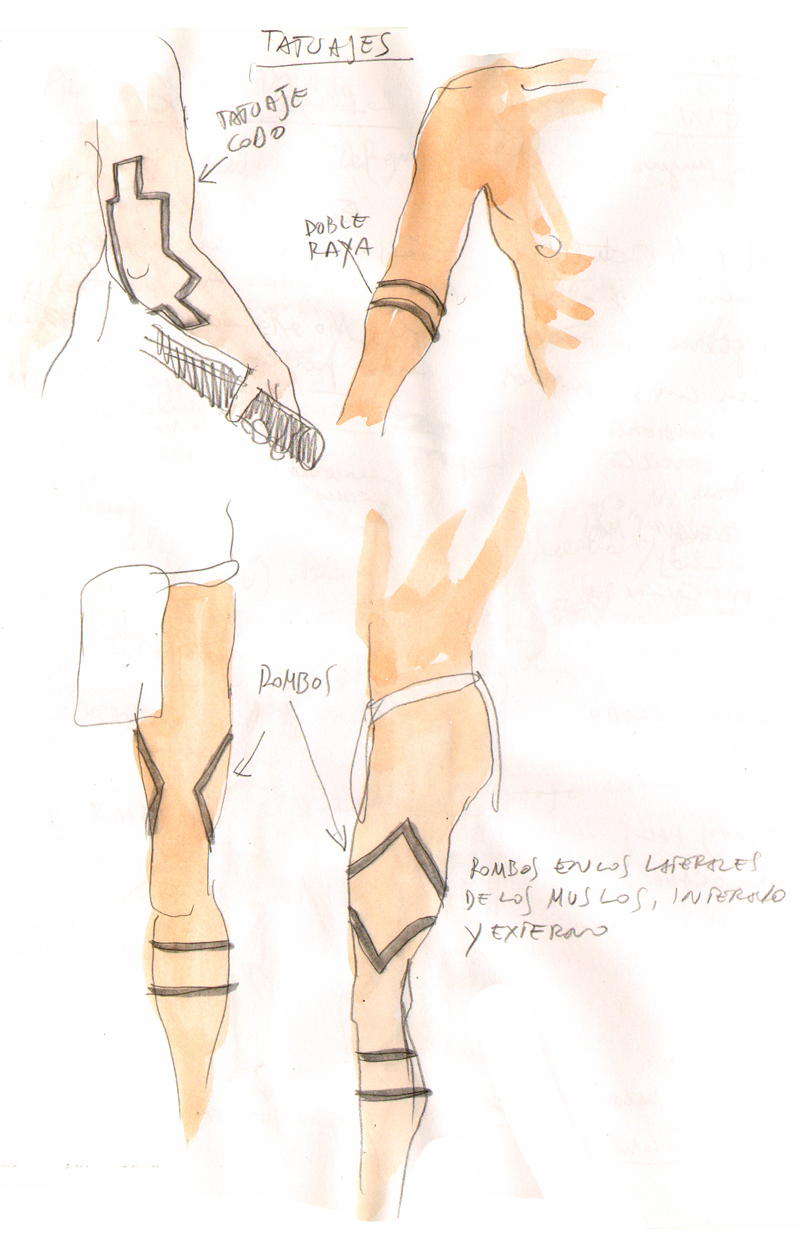 TATUAJES
TATUAJE
CODO
DOBLE
RAYA
ROMBOS
ROMBOS EN LOS LATERALES
DE LOS MUSLOS, INTERNO
Y EXTERNO